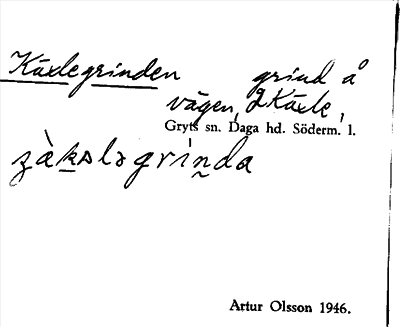 Käxlegrinden grind å
vägen, Käxle,
Gryts sn. Daga hd. Söderm. l.
Artur Olsson 1946.